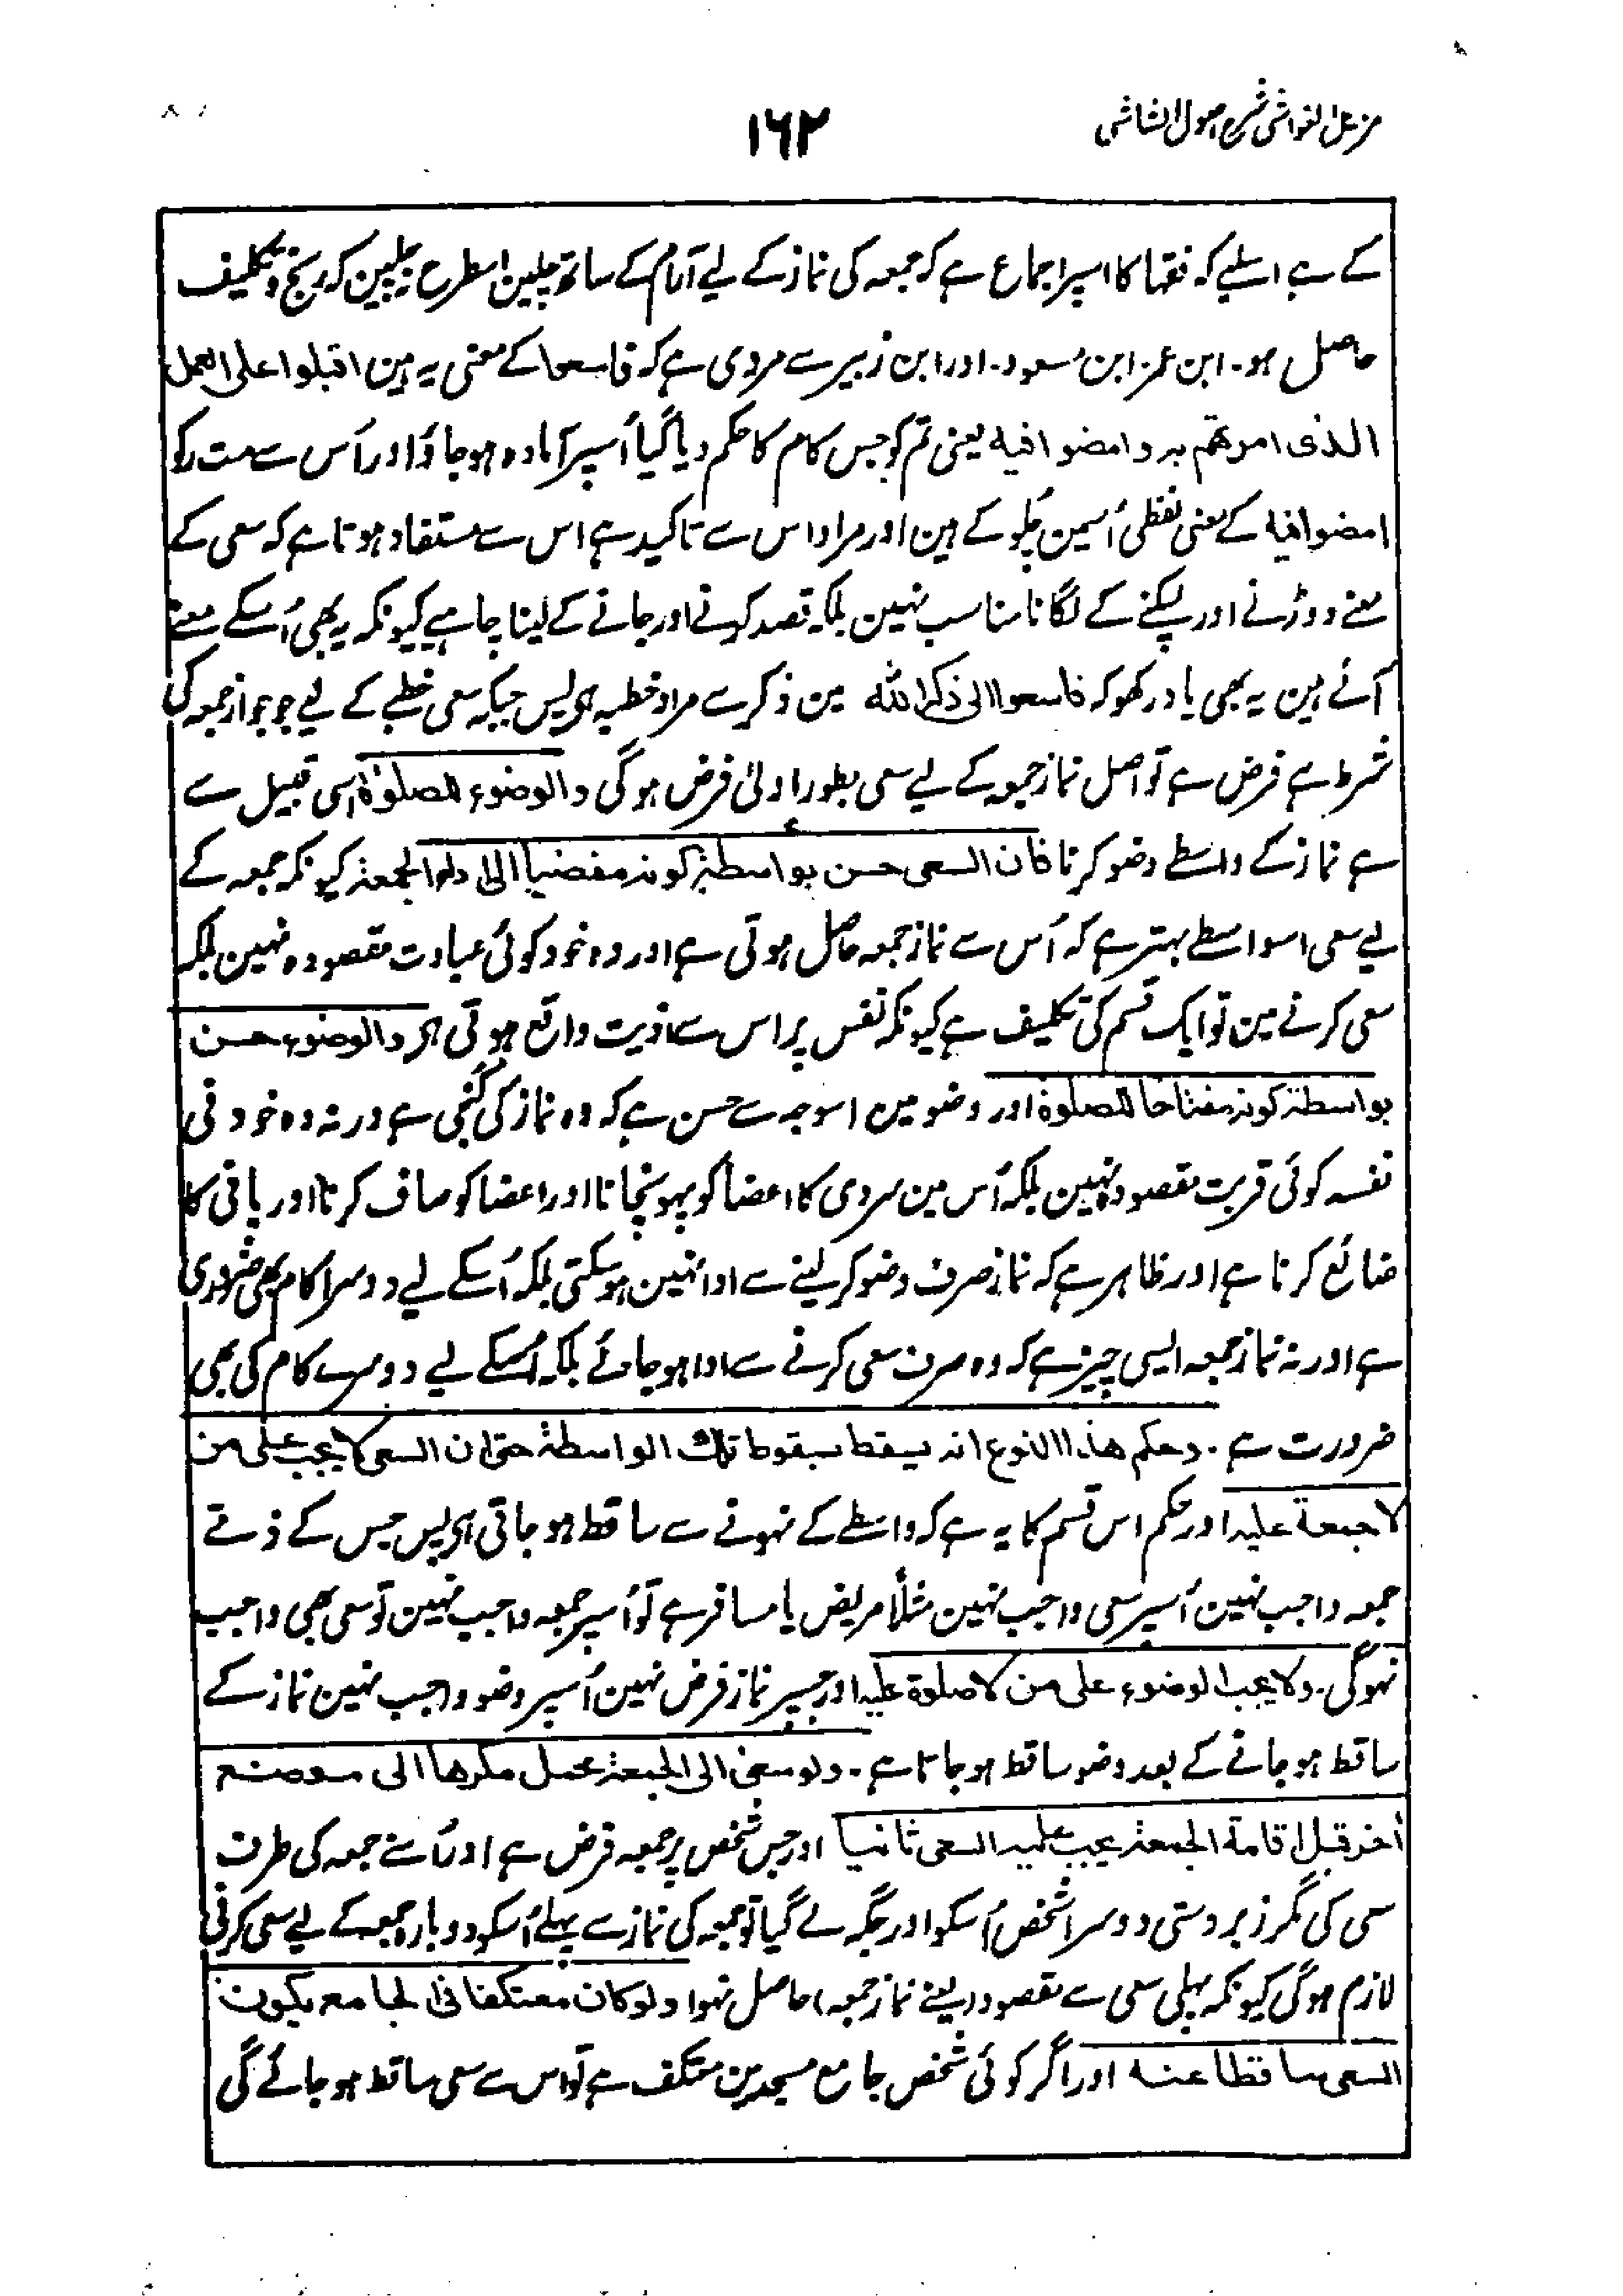 مزیل الغواشی شرح اصول الشاشی
۱۶۲
کے ہے اسلیے کہ فقہا کا اسپر اجماع ہے کہ جمعہ کی نماز کے لیے آرام کے ساتھ چلین اسطرح نچلین کہ رنج و تکلیف
حاصل ہو۔ ابن عمر۔ ابن مسعود۔ اور ابن زبیر سے مروی ہے کہ فاسعوا کے معنی یہ ہین اقبلوا علی العمل
الذی امرتم بہ و امضوا فیہ یعنی تم کو جس کام کا حکم دیا گیا اُسپر آمادہ ہو جاؤ اور اُس سے مت رکو
امضوا فیہ کے معنی لفظی اُسمین چلو کے ہین اور مراد اس سے تاکید ہے اس سے مستفاد ہوتا ہے کہ سعی کے
معنے دوڑنے اور لپکنے کے لگانا مناسب نہین بلکہ قصد کرنے اور جانے کے لینا چاہیے کیونکہ یہ بھی اُسکے معنے
آئے ہین یہ بھی یاد رکھو کہ فاسعوا الی ذکر اللہ مین ذکر سے مراد خطبہ ہی پس جبکہ سعی خطبے کے لیے جو جواز جمعہ کی
شرط ہے فرض ہے تو اصل نماز جمعہ کے لیے سعی بطور اولیٰ فرض ہوگی والوضوء للصلوٰۃ اسی قبیل سے
ہے نماز کے واسطے وضو کرنا فان السعی حسن بواسطۃ کونہ مفضیا الی اداء الجمعۃ کیونکہ جمعہ کے
لیے سعی اسواسطے بہتر ہے کہ اُس سے نماز جمعہ حاصل ہوتی ہے اور وہ خود کوئی عبادت مقصودہ نہین بلکہ
سعی کرنے مین تو ایک قسم کی تکلیف ہے کیونکہ نفس پر اس سے اذیت واقع ہوتی ہی والوضوء حسن
بواسطۃ کونہ مفتاحا للصلوۃ اور وضو مین اسوجہ سے حسن ہے کہ وہ نماز کی کنجی ہے ورنہ وہ خود فی
نفسہ کوئی قربت مقصودہ نہین بلکہ اُس مین سردی کا اعضا کو پہونچانا اور اعضا کو صاف کرنا اور پانی کا
ضائع کرنا ہے اور ظاہر ہے کہ نماز صرف وضو کر لینے سے ادا نہین ہوسکتی بلکہ اُسکے لیے دوسرا کام بھی ضروری
ہے اور نہ نماز جمعہ ایسی چیز ہے کہ وہ صرف سعی کرنے سے ادا ہو جائے بلکہ اُسکے لیے دوسرے کام کی بھی
ضرورت ہے۔ وحکم ھذا النوع انہ یسقط بسقوط تلک الواسطۃ حتی ان السعی لا یجب علی من
لا جمعۃ علیہ اور حکم اس قسم کا یہ ہے کہ واسطے کے نہونے سے ساقط ہو جاتی ہی پس جس کے ذمے
جمعہ واجب نہین اُسپر سعی واجب نہین مثلاً مریض یا مسافر ہے تو اُسپر جمعہ واجب نہین تو سعی بھی واجب
نہوگی۔ ولا یجب الوضوء علی من لا صلوۃ علیہ اور جسپر نماز فرض نہین اُسپر وضو واجب نہین نماز کے
ساقط ہو جانے کے بعد وضو ساقط ہو جاتا ہے۔ ولو سعی الی الجمعۃ فحمل مکرھا الی موضع
آخر قبل اقامۃ الجمعۃ یجب علیہ السعی ثانیا اور جس شخص پر جمعہ فرض ہے اور اُسنے جمعہ کی طرف
سعی کی مگر زبردستی دوسرا شخص اُسکو اور جگہ لے گیا تو جمعہ کی نماز سے پہلے اُسکو دوبارہ جمعہ کے لیے سعی کرنی
لازم ہوگی کیونکہ پہلی سعی سے مقصود (یعنے نماز جمعہ) حاصل نہوا ولو کان معتکفا فی الجامع یکون
السعی ساقطا عنہ اور اگر کوئی شخص جامع مسجد مین معتکف ہے تو اس سے سعی ساقط ہو جائے گی